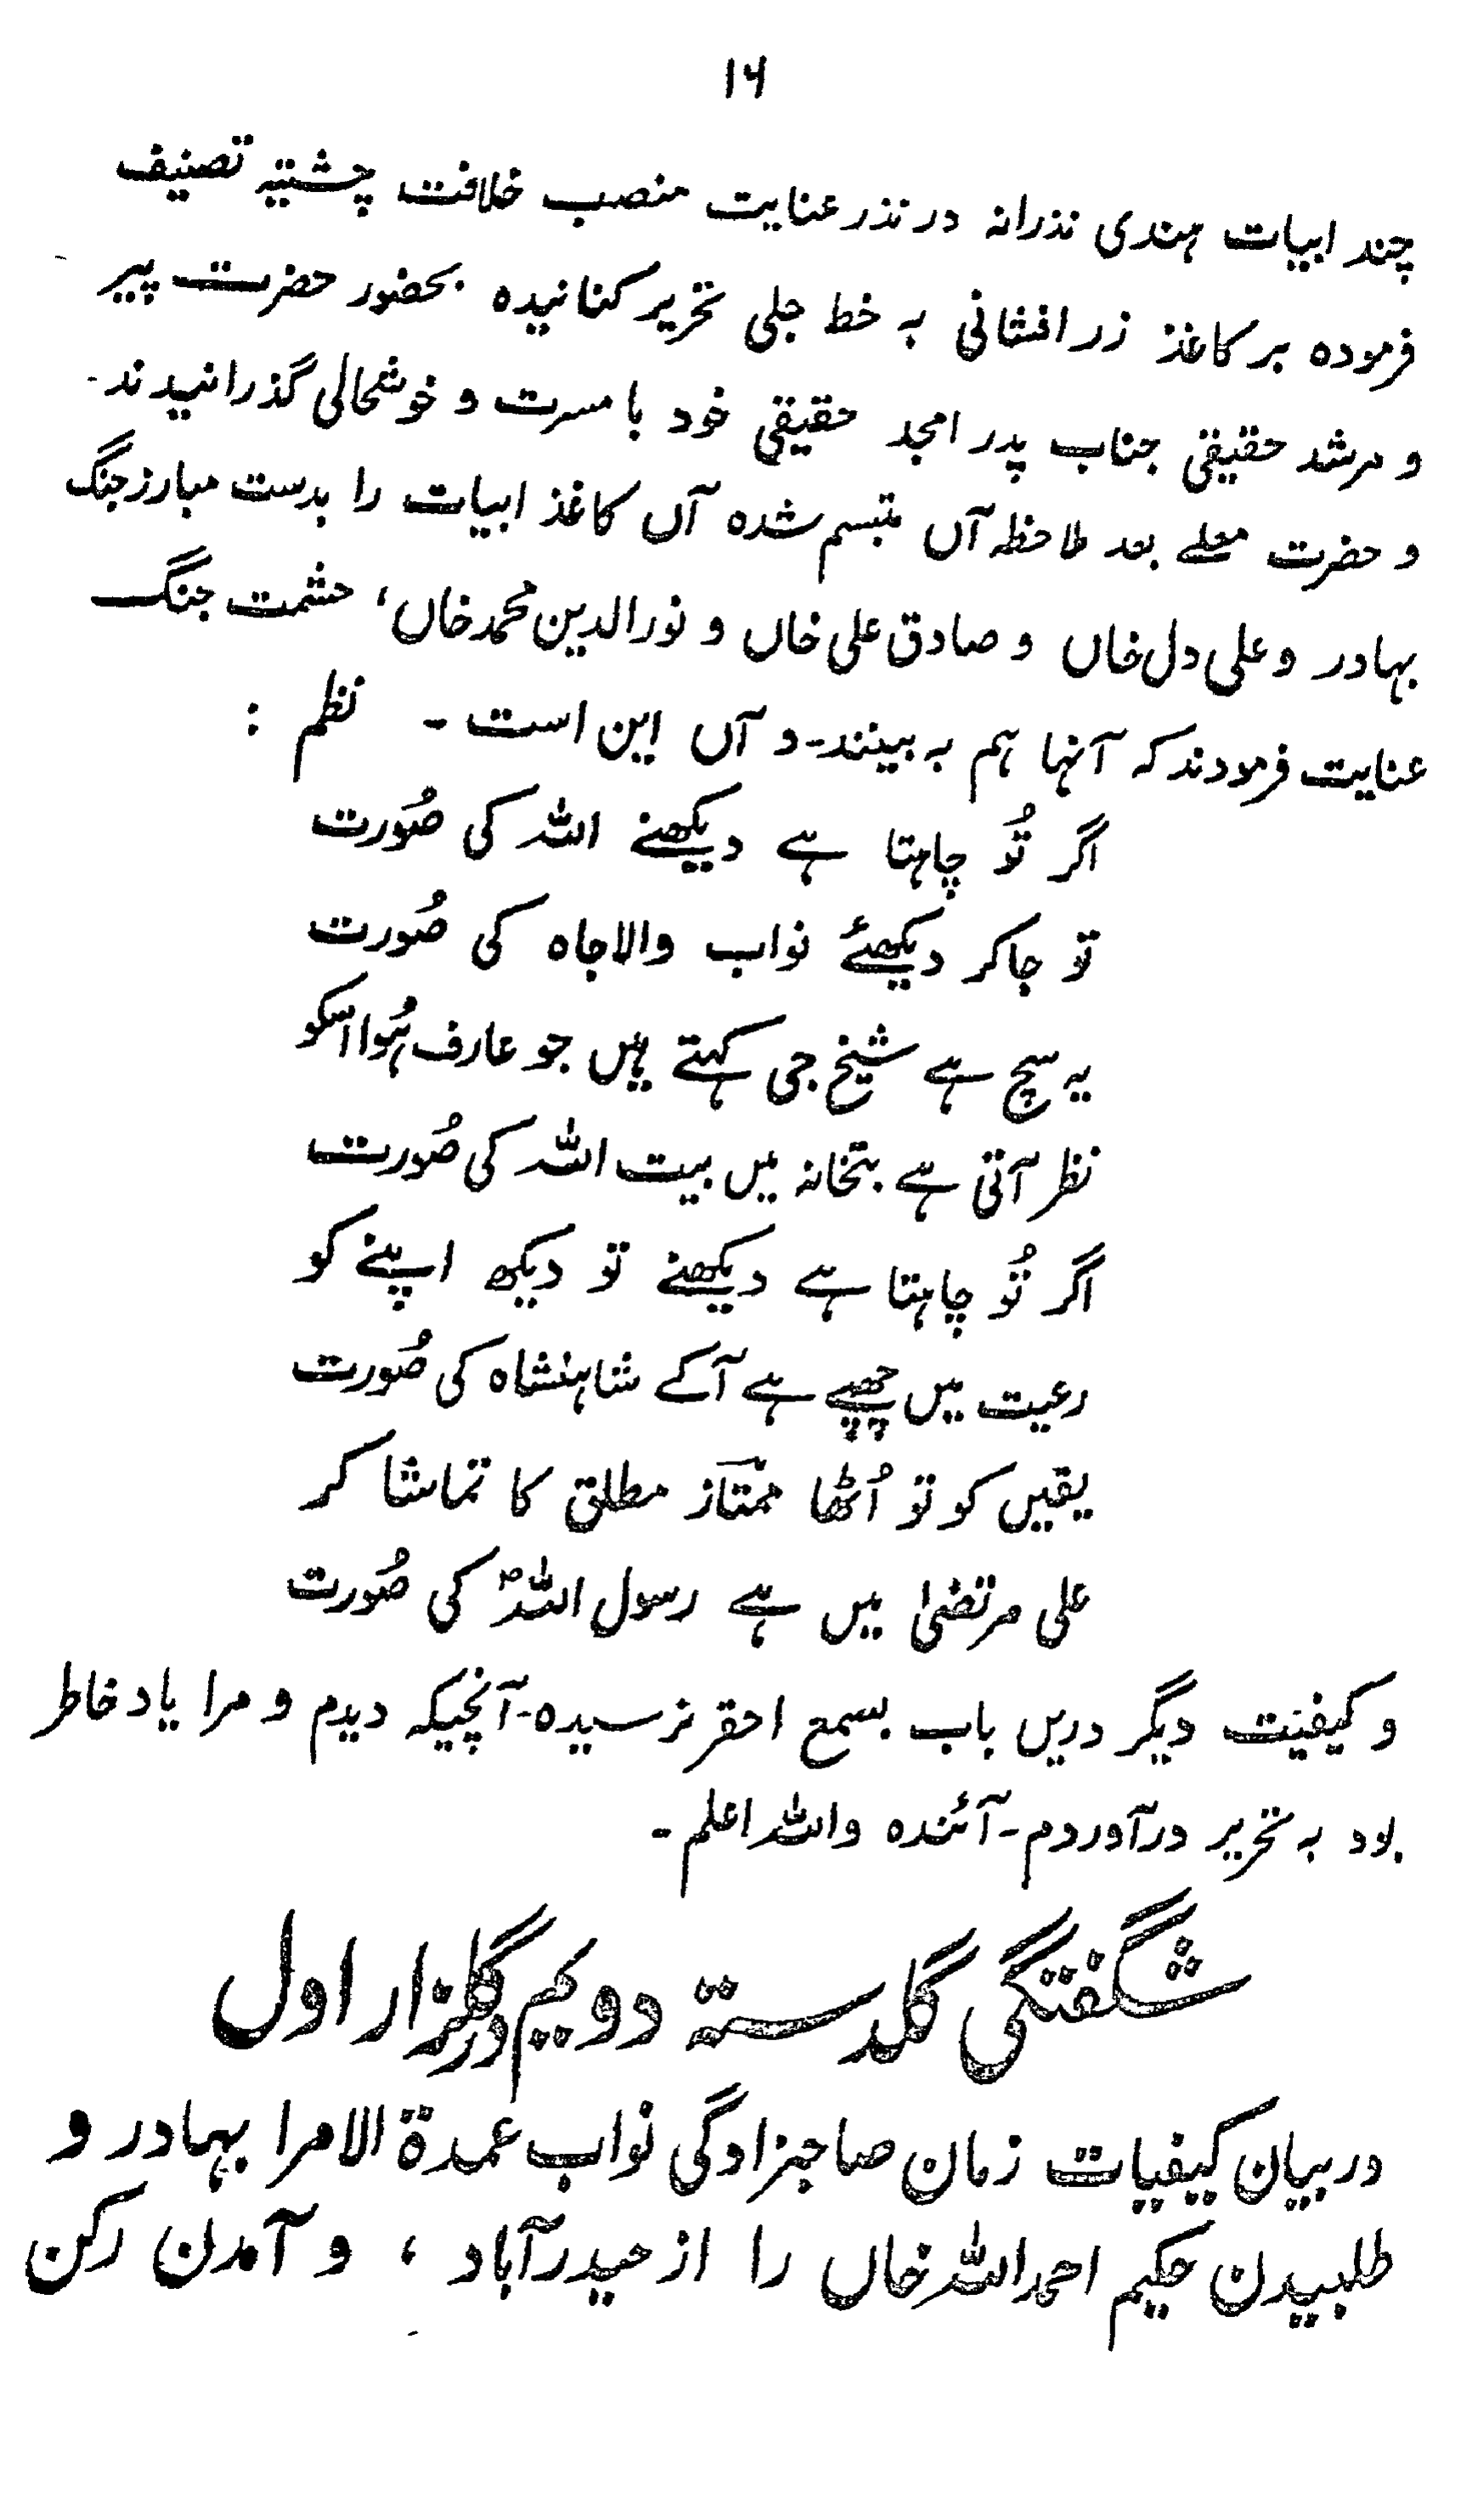 ۱۶
چند ابیات ہندی نذرانہ در نذر عنایت منصب خلافت چشتیہ تصنیف
فرمودہ بر کاغذ زر افشانی بہ خط جلی تحریر کنانیدہ بحضور حضرت پیر
و مرشد حقیقی جناب پدر امجد حقیقی خود با مسرت و خوشحالی گذرانیدند۔
و حضرت معلے بعد ملاحظہ آں متبسم شدہ آں کاغذ ابیات را بدست مبارز جنگ
بہادر و علی دل خاں و صادق علی خاں و نور الدین محمد خاں، حشمت جنگ
عنایت فرمودند کہ آنہا ہم بہ بینند۔ و آں این است۔ نظم :
اگر تُو چاہتا ہے دیکھنے اللہ کی صُورت
تو جا کر دیکھئے نواب والا جاہ کی صُورت
یہ سچ ہے شیخ جی کہتے ہیں جو عارف ہُوا اسکو
نظر آتی ہے بتخانہ میں بیت اللہ کی صُورت
اگر تُو چاہتا ہے دیکھنے تو دیکھ اپنے کو
رعیت میں چھپے ہے آکے شاہنشاہ کی صُورت
یقیں کو تو اُٹھا ممتاز مطلق کا تماشا کر
علی مرتضیٰ میں ہے رسول اللہؐ کی صُورت
و کیفیت دیگر دریں باب بسمع احقر نرسیدہ۔ آنچیکہ دیدم و مرا یاد خاطر
بود بہ تحریر در آوردم۔ آئندہ واللہ اعلم۔
شگفتگی گلدستۂ دویم در گلزار اول
در بیان کیفیات زمان صاحبزادگی نواب عمدۃ الامرا بہادر و
طلبیدن حکیم احمد اللہ خاں را از حیدر آباد ، و آمدن رکن